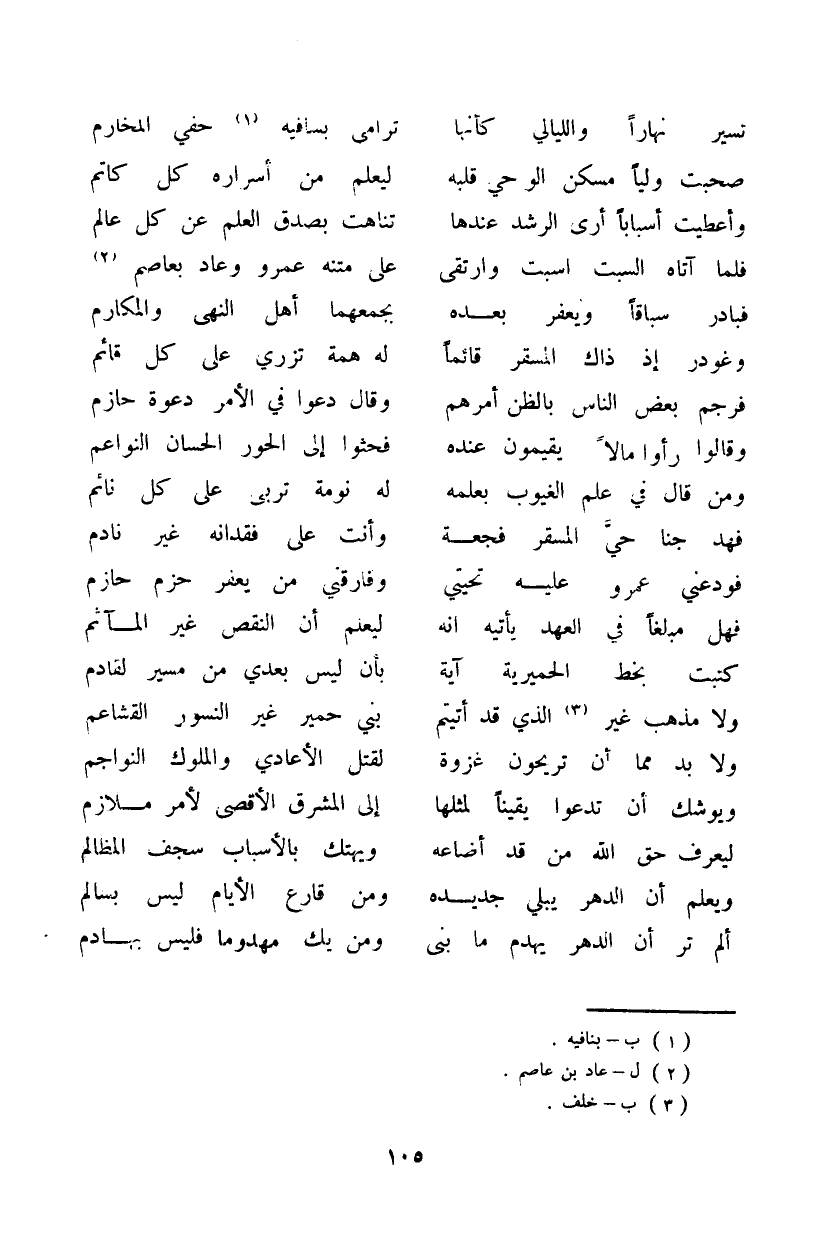 تسير نهاراً والليالي كأنها ترامى بسافيه (١) حفي المخارم
صحبت ولياً مسكن الوحي قلبه ليعلم من أسراره كل كاتم
وأعطيت أسباباً أرى الرشد عندها تناهت بصدق العلم عن كل عالم
فلما آتاه السبت اسبت وارتقى على متنه عمرو وعاد بعاصم (٢)
فبادر سباقاً ويعفر بعده بجمعهما أهل النهى والمكارم
وغودر إذ ذاك المسقر قائماً له همة تزري على كل قائم
فرجم بعض الناس بالظن أمرهم وقال دعوا في الأمر دعوة حازم
وقالوا رأوا مالاً يقيمون عنده فحثوا إلى الحور الحسان النواعم
ومن قال في علم الغيوب بعلمه له نومة تربى على كل نائم
فهد جنا حيَّ المسقر فجعة وأنت على فقدانه غير نادم
فودعني عمرو عليه تحيتي وفارقني من يعفر حزم حازم
فهل مبلغاً في العهد يأتيه انه ليعلم أن النقص غير المآثم
كتبت بخط الحميرية آية بأن ليس بعدي من مسير لقادم
ولا مذهب غير (٣) الذي قد أتيتم بني حمير غير النسور القشاعم
ولا بد مما أن تريحون غزوة لقتل الأعادي والملوك النواجم
ويوشك أن تدعوا يقيناً لمثلها إلى المشرق الأقصى لأمر ملازم
ليعرف حق الله من قد أضاعه ويهتك بالأسباب سجف المظالم
ويعلم أن الدهر يبلي جديده ومن قارع الأيام ليس بسالم
ألم تر أن الدهر يهدم ما بنى ومن يك مهدوما فليس بهادم
(١) ب – بنافيه .
(٢) ل – عاد بن عاصم .
(٣) ب – خلف .
١٠٥